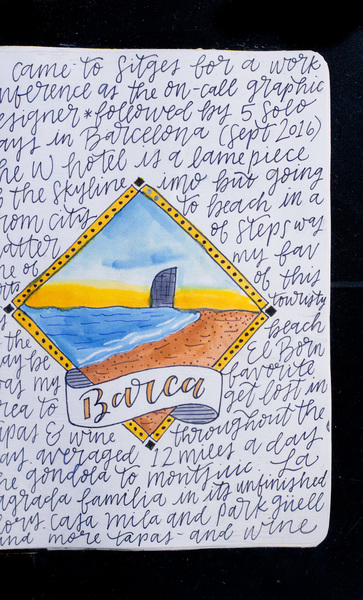 came to Sitges for a work
nference as the on-call graphic
esigner *followed by 5 solo
ays in Barcelona (Sept 2016)
he W hotel is a lame piece
the skyline imo but going
rom city to beach in a
atter of steps was
ne of my fav
of this
touristy
the beach
aybe El Born
as my favorite
rea to get lost in
Barca
apas & wine throughout the
ay. averaged 12 miles a day
he gondola to montjuic La
agrada familia in its unfinished
lory. casa mila and park guell
and more tapas and wine